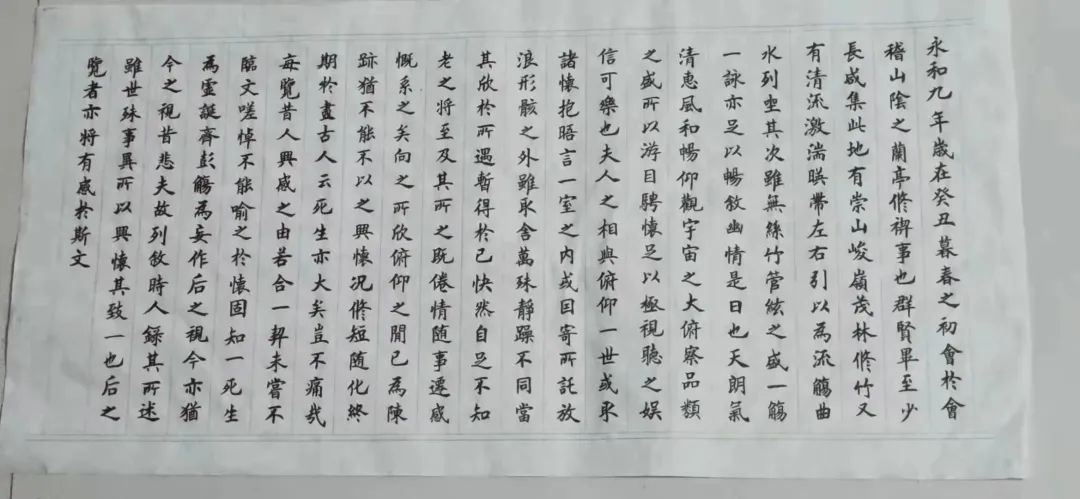 永和九年歲在癸丑暮春之初會於會
稽山陰之蘭亭脩禊事也群賢畢至少
長咸集此地有崇山峻嶺茂林脩竹又
有清流激湍暎帶左右引以為流觴曲
水列坐其次雖無絲竹管絃之盛一觴
一詠亦足以暢敘幽情是日也天朗氣
清惠風和暢仰觀宇宙之大俯察品類
之盛所以游目騁懷足以極視聽之娛
信可樂也夫人之相與俯仰一世或取
諸懷抱晤言一室之內或因寄所託放
浪形骸之外雖取舍萬殊靜躁不同當
其欣於所遇暫得於己快然自足不知
老之將至及其所之既倦情隨事遷感
慨系之矣向之所欣俯仰之閒已為陳
跡猶不能不以之興懷況脩短隨化終
期於盡古人云死生亦大矣豈不痛哉
每覽昔人興感之由若合一契未嘗不
臨文嗟悼不能喻之於懷固知一死生
為虛誕齊彭觴為妄作后之視今亦猶
今之視昔悲夫故列敘時人錄其所述
雖世殊事異所以興懷其致一也后之
覽者亦將有感於斯文